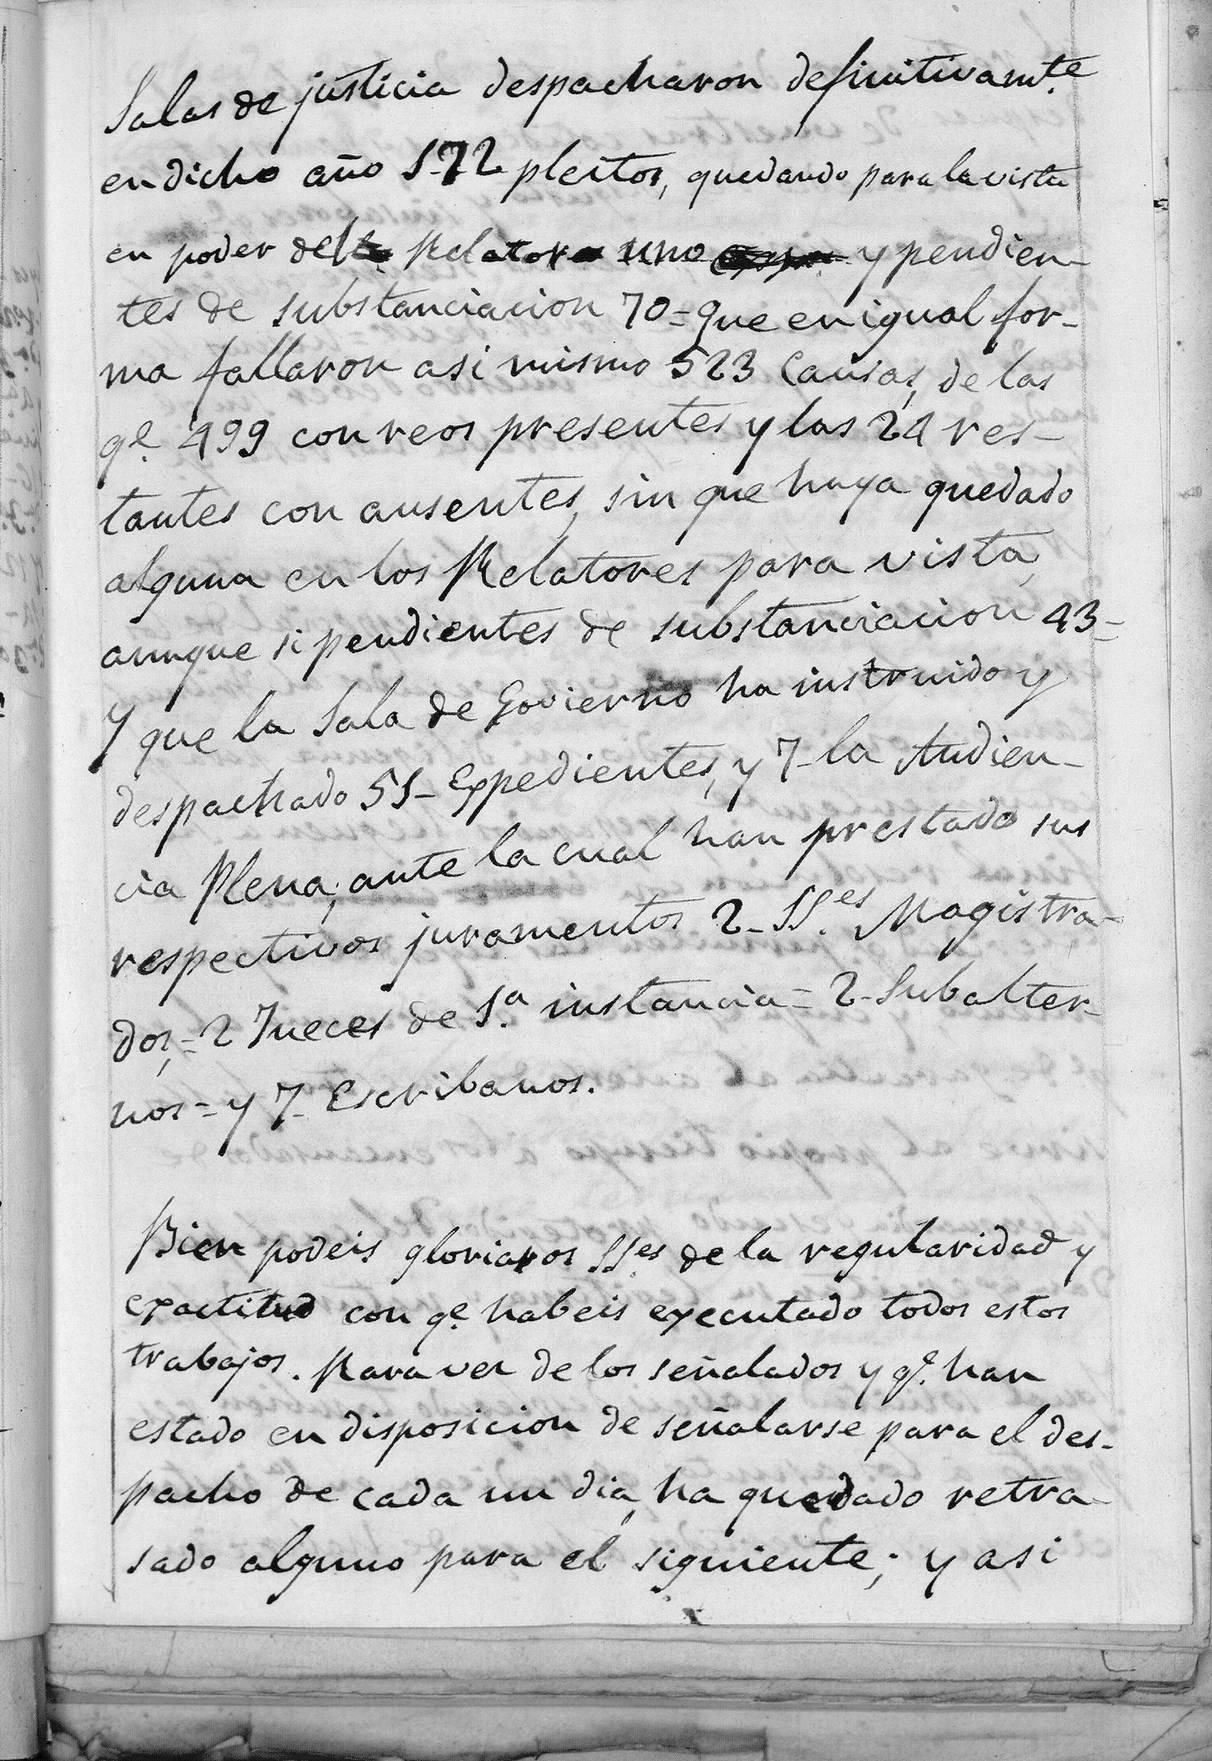 Salas de justicia despacharon definitivamte.
en dicho año 172 pleitos, quedando para la vista
en poder del Relator uno y pendien-
tes de substanciacion 70 = Que en igual for-
ma fallaron asi mismo 523 Causas, de las
qe. 499 con reos presentes y las 24 res-
tantes con ausentes, sin que haya quedado
alguna en los Relatores para vista,
aunque si pendientes de substanciacion 43 =
Y que la Sala de Govierno ha instruido y
despachado 51 - Expedientes, y 7 - la Audien-
cia Plena; ante la cual han prestado sus
respectivos juramentos 2 - SSes. Magistra-
dos, = 2 Jueces de 1a. instancia = 2 - Subalter-
nos = y 7 - Escribanos.
Bien podeis gloriaros SSes. de la regularidad y
exactitud con qe. habeis executado todos estos
trabajos. Rara vez de los señalados y qe. han
estado en disposicion de señalarse para el des-
pacho de cada un dia, ha quedado retra-
sado alguno para el siguiente; y asi